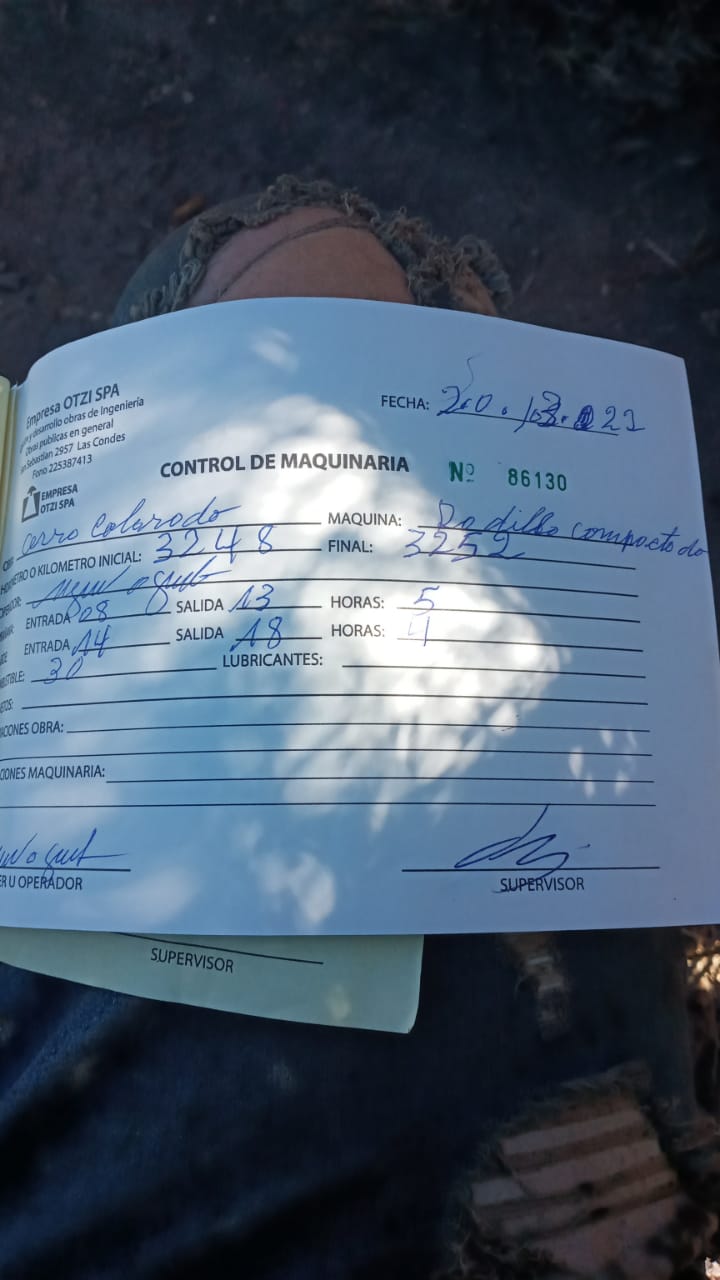 Empresa OTZI SPA
y desarrollo obras de Ingeniería
Obras publicas en general
Sebastian 2957 Las Condes
Fono 225387413
EMPRESA
OTZI SPA
FECHA: 20.
CONTROL DE MAQUINARIA Nº 86130
Cerro Colorado MAQUINA: Rodillo compactado
METRO O KILOMETRO INICIAL: 3248 FINAL: 3252
ENTRADA 08 SALIDA 13 HORAS: 5
ENTRADA 14 SALIDA 18 HORAS: 4
USTIBLE: 30 LUBRICANTES:
ACIONES OBRA:
CIONES MAQUINARIA:
ER U OPERADOR SUPERVISOR
SUPERVISOR